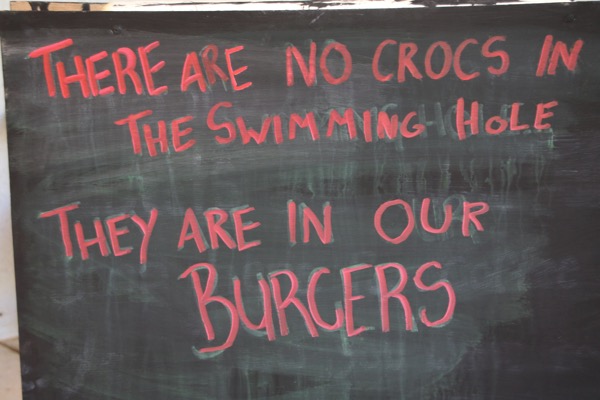 THERE ARE NO CROCS IN
THE SWIMMING HOLE
THEY ARE IN OUR
BURGERS